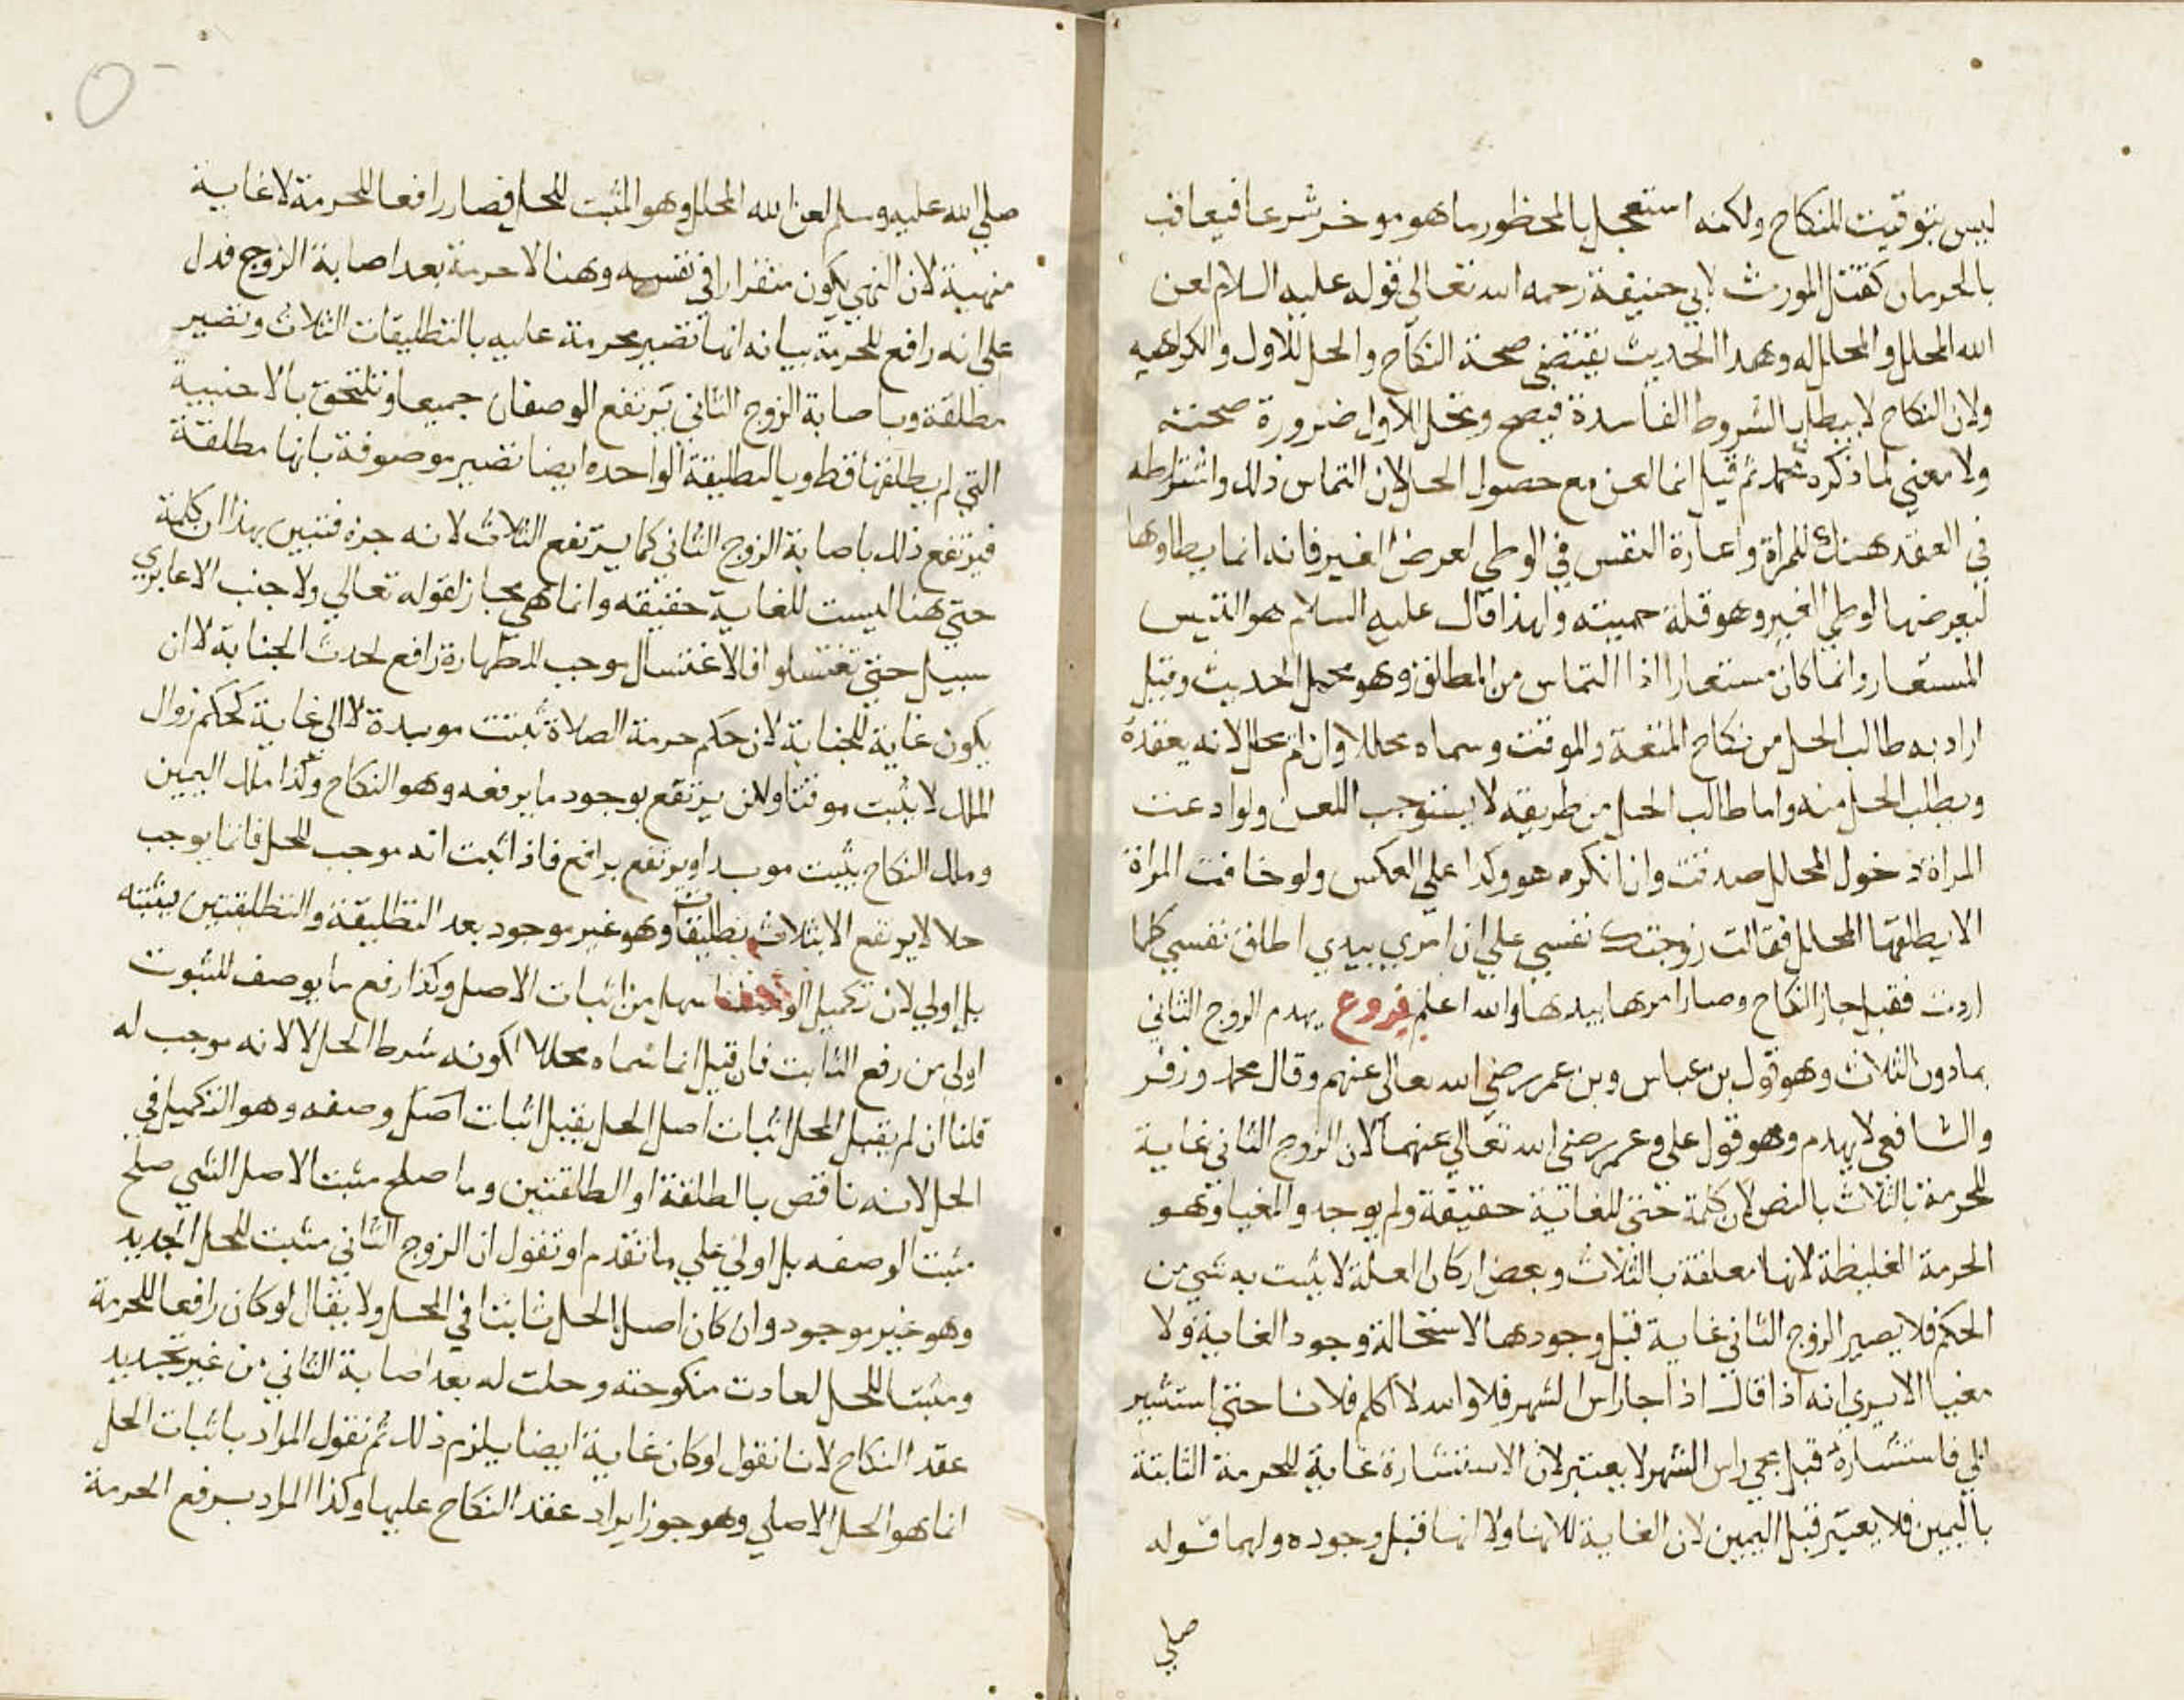 ليس بتوقيت للنكاح ولكنه استعجل بالمحظور ما هو موخر شرعا فيعاقب
بالحرمان كقتل المورث لابي حنيفة رحمه الله تعالى قوله عليه السلام لعن
الله المحلل والمحلل له وهدا الحديث يقتضي صحة النكاح والحل للاول والكراهيه
ولان النكاح لا يبطل بالشروط الفاسدة فيصح وتحل للاول ضرورة صحته
ولا معني لما ذكره محمد ثم قيل انما لعن مع حصول الحل لان التماس ذلك واشتراطه
في العقد هتك للمراة واعارة النفس في الوطي لعرض الغير فانه انما يطاوها
ليعرضها لوطي الغير وهو قلة حميته ولهذا قال عليه السلام هو التيس
المستعار وانما كان مستعارا اذا التماس من المطلق وهو محمل الحديث وقيل
اراد به طالب الحل من نكاح المتعة والموقت وسماه محللا وان لم يحلل لانه يعقده
ويطلب الحل منه واما طالب الحل من طريقه لا يستوجب اللعن ولو ادعت
المراة دخول المحلل صدقت وان انكره هو وكدا علي العكس ولو خافت المراة
الا يطلقها المحلل فقالت زوجتك نفسي علي ان امري بيدي اطلق نفسي كلما
اردت فقبل جاز النكاح وصار امرها بيدها والله اعلم فروع يهدم الزوج الثاني
مادون الثلاث وهو قول بن عباس وبن عمر رضي الله تعالى عنهم وقال محمد وزفر
والشافعي لا يهدم وهو قول علي وعمر رضي الله تعالي عنهما لان الزوج الثاني غاية
للحرمة بالثلاث بالنص لان كلمة حتي للغاية حقيقة ولم يوجد والمغيا وهو
الحرمة الغليظة لانها معلقة بالثلاث وبعض اركان العلة لا يثبت به شي من
الحكم فلا يصير الزوج الثاني غاية قبل وجودها لاستحالة وجود الغاية ولا
مغيا الا يري انه اذا قال اذا جا راس الشهر فلا والله لا اكلم فلانا حتي استشير
ابي فاستشارة قبل مجي راس الشهر لا يعتبر لان الاستشارة غاية للحرمة الثابتة
باليمين فلا يعتبر قبل اليمين لان الغاية للانها ولا انها قبل وجوده ولهما قوله
صلي
صلي الله عليه وسلم لعن الله المحلل وهو المثبت للحل فصار رافعا للحرمة لا غاية
منهية لان النهي يكون متقررا في نفسه وهنا لا حرمة بعد اصابة الزوج فدل
علي انه رافع للحرمة بيانه انها تصير محرمة عليه بالتطليقات الثلاث وتصير
مطلقة وباصابة الزوج الثاني يرتفع الوصفان جميعا وتلتحق بالاجنبية
التي لم يطلقها قط وبالتطليقة الواحده ايضا تصير موصوفة بانها مطلقة
فيرتفع ذلك باصابة الزوج الثاني كما يرتفع الثلاث لانه جزه فتبين بهذا ان كلمة
حتي هنا ليست للغاية حقيقه وانما هي مجاز لقوله تعالي ولا جنبا الا عابري
سبيل حتي تغتسلوا فالاغتسال موجب للطهارة رافع لحدث الجنابة لا ان
يكون غاية للجنابة لان حكم حرمة الصلاة ثبتت موبدة لا الي غاية كحكم زوال
الملك لا يثبت موقتا ولكن يرتفع بوجود ما يرفعه وهو النكاح وكذا ملك اليمين
وملك النكاح يثبت موبدا ويرتفع برافع فاذا ثبت انه موجب للحل فانما يوجب
حلا لا يرتفع الا بثلاث تطليقات وهو غير موجود بعد التطليقة والتطليقتين فيثبته
بل اولي لان تكميل الوصف اسهل من اثبات الاصل وكذا رفع ما يوصف للثبوت
اولي من رفع الثابت فان قيل انما سماه محللا لكونه شرط الحل لا لانه موجب له
قلنا ان لم يقبل المحل اثبات اصل الحل يقبل اثبات اصل وصفه وهو التكميل في
الحل لانه ناقص بالطلقة او الطلقتين وما صلح مثبت الاصل الشي صلح
مثبتا لوصفه بل اولي علي ما تقدم او نقول ان الزوج الثاني مثبت للحل الجديد
وهو غير موجود وان كان اصل الحل ثابتا في المحل ولا يقال لو كان رافعا للحرمة
ومثبتا للحل لعادت منكوحته وحلت له بعد اصابة الثاني من غير تجديد
عقد النكاح لانا نقول لو كان غاية ايضا يلزم ذلك ثم نقول المراد باثبات الحل
انما هو الحل الاصلي وهو جواز ايراد عقد النكاح عليها وكذا المراد برفع الحرمة